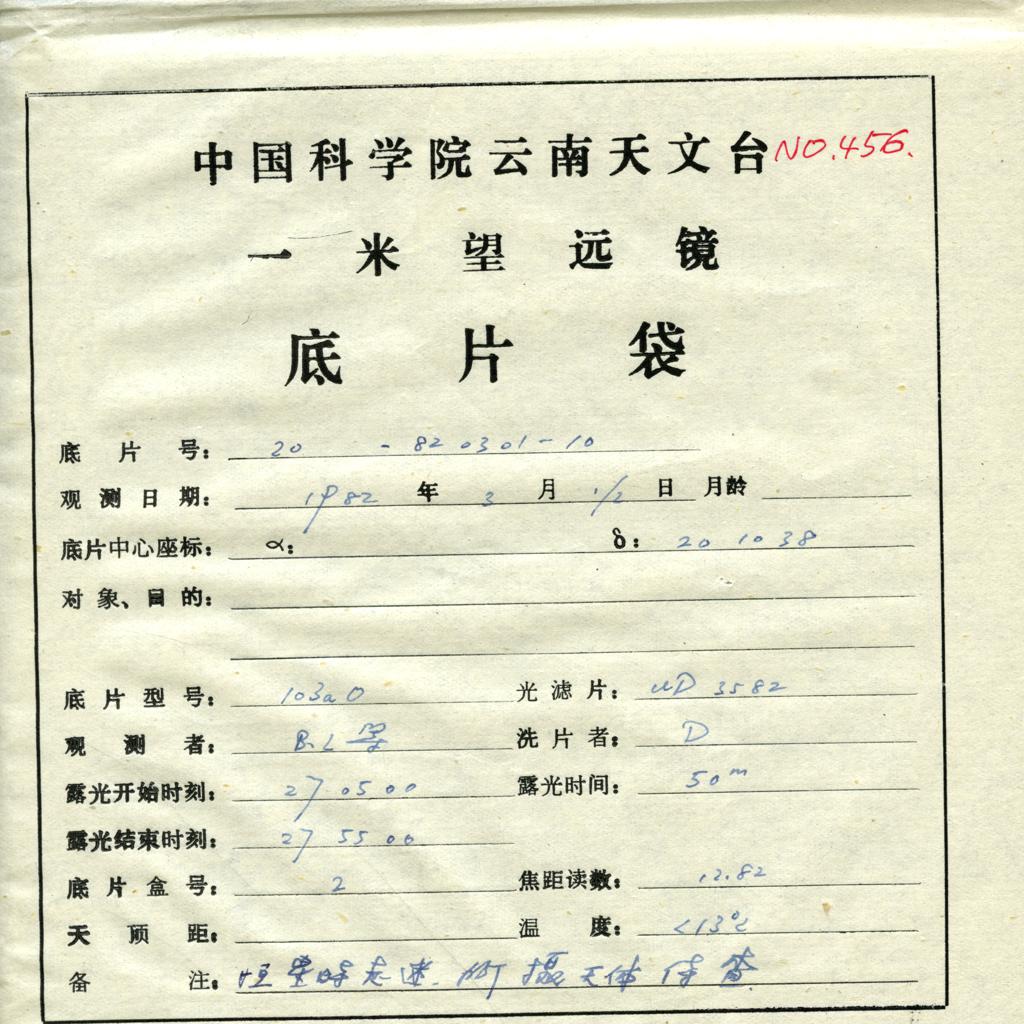 中国科学院云南天文台 NO.456.
一米望远镜
底片袋
底片号： 20 - 820301-10
观测日期： 1982 年 3 月 1/2 日 月龄
底片中心座标： α： δ： 20 10 38
对象、目的：
底片型号： 103aO 光滤片： 3582
观测者： 洗片者： D
露光开始时刻： 27 05 00 露光时间： 50m
露光结束时刻： 27 55 00
底片盒号： 2 焦距读数： 12.82
天顶距： 温度： <13°c
备注： 恒星时 所摄天体待查